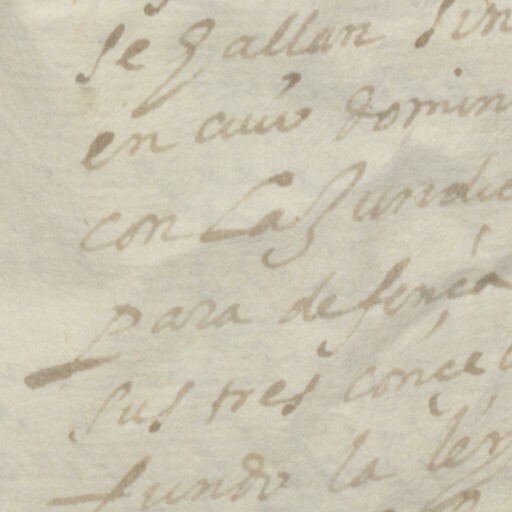 se hallan sin
en cuio domin
con La Jundic
para defença
sus tres conce
fundo la